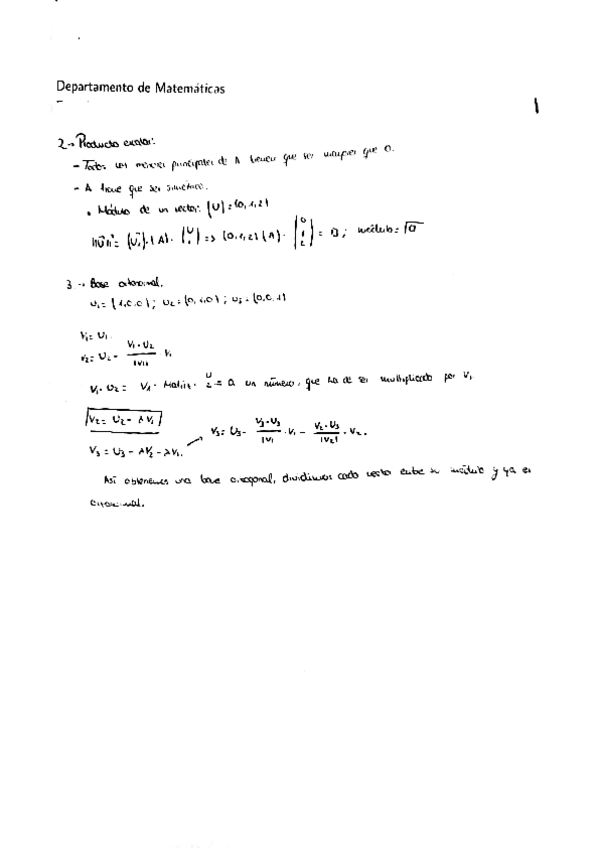 Departamento de Matemáticas
1
2 → Producto escalar:
- Todos los menores principales de A tienen que ser mayores que 0.
- A tiene que ser simétrica.
• Módulo de un vector: (U) = (0, 1, 2)
(0, 1, 2) (A) · (0 1 2) = ; módulo = √a
3 → Base ortonormal.
U₁ = (1,0,0); U₂ = (0,1,0); U₃ = (0,0,1)
V₁ = U₁.
V₂ = U₂ - V₁·U₂/|V₁| V₁
V₁·U₂ = V₁ · Matriz · U₂ = un número, que ha de ser multiplicado por V₁
V₂ = U₂ - λV₁
V₃ = U₃ - · V₁ - V₂·U₃/|V₂| · V₂.
V₃ = U₃ - λV₂ - λV₁.
Así obtenemos una base ortogonal, dividimos cada vector entre su módulo y ya es
ortonormal.